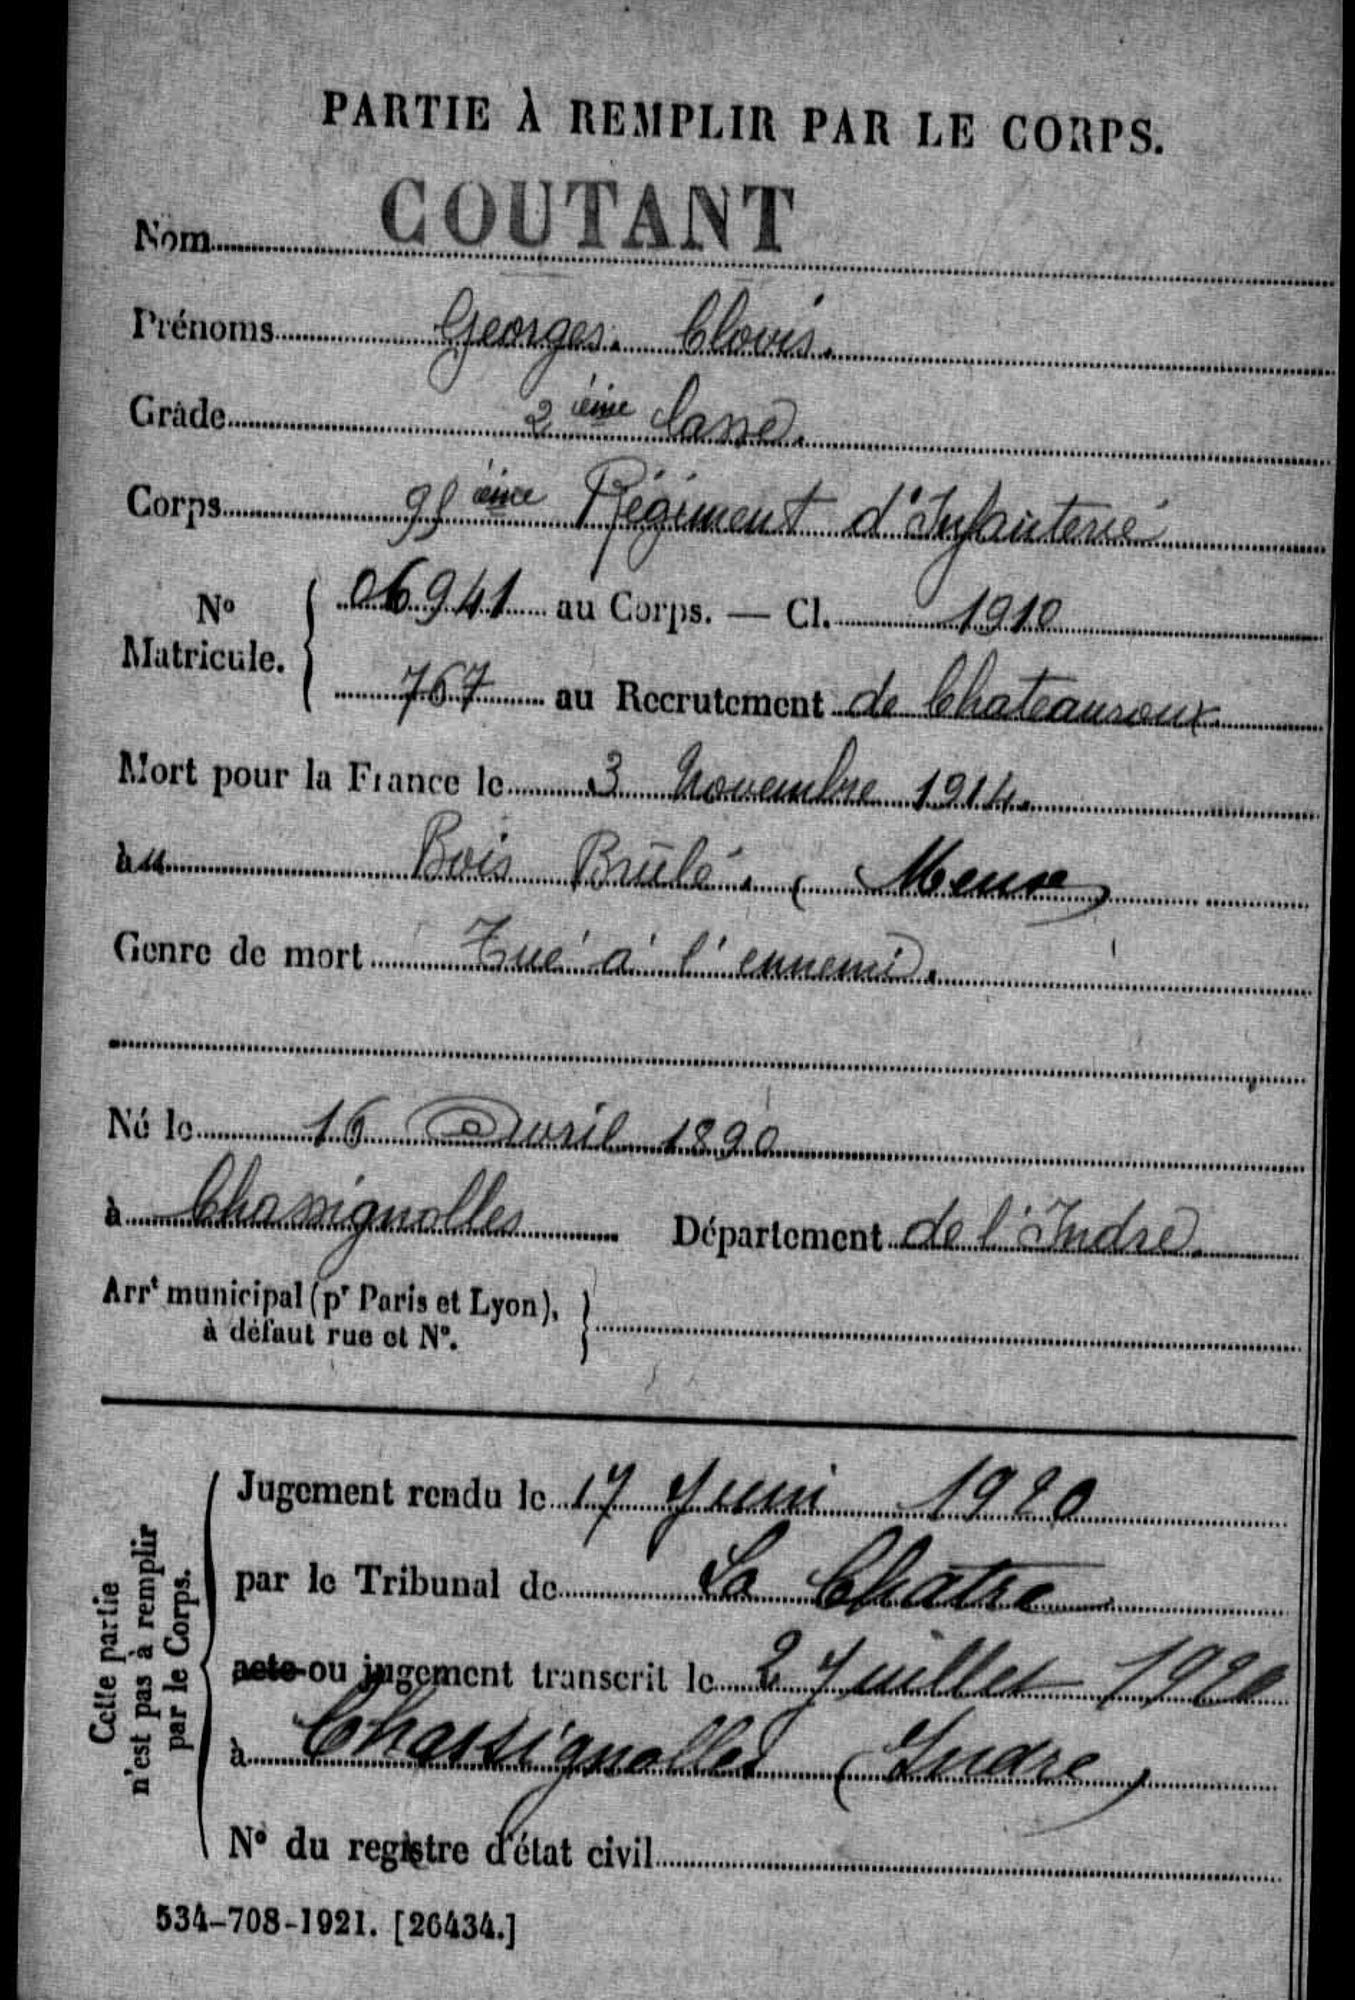 PARTIE À REMPLIR PAR LE CORPS.
Nom COUTANT
Prénoms Georges. Clovis.
Grade 2 ième Classe.
Corps 95 ième Régiment d'Infanterie
No Matricule. { 06941 au Corps. — Cl. 1910
767 au Recrutement de Chateauroux
Mort pour la France le 3 Novembre 1914.
àu Bois Brûlé. (Meuse)
Genre de mort Tué à l'ennemi.
Né le 16 Avril 1890
à Chassignolles Département de l'Indre.
Arrt municipal (pr Paris et Lyon), à défaut rue et No. }
Cette partie n'est pas à remplir par le Corps.
Jugement rendu le 17 Juin 1920
par le Tribunal de La Chatre.
acte ou jugement transcrit le 2 Juillet 1920
à Chassignolles (Indre)
No du registre d'état civil
534-708-1921. [26434.]